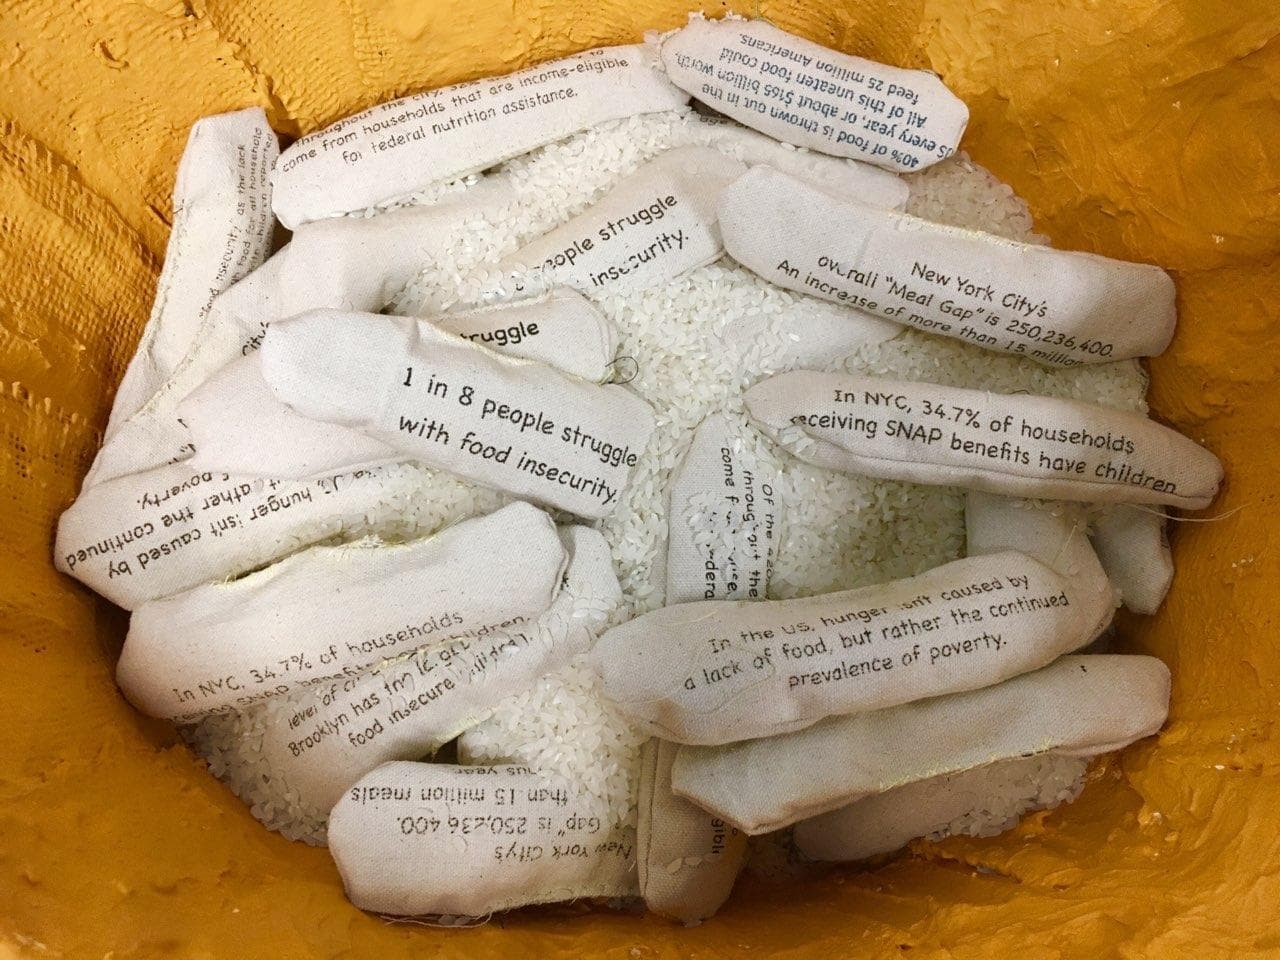 throughout the city,
come from households that are income-eligible
for federal nutrition assistance.
40% of food is thrown out in the
US every year, or about $165 billion worth.
All of this uneaten food could
feed 25 million Americans.
insecurity, as the lack
food for all household
with children reported
people struggle
insecurity.
New York City's
overall "Meal Gap" is 250,236,400.
An increase of more than 15 million
City's
struggle
1 in 8 people struggle
with food insecurity.
In NYC, 34.7% of households
receiving SNAP benefits have children
hunger isn't caused by
rather the continued
poverty.
Of the
throughout the
come
In the US, hunger isn't caused by
a lack of food, but rather the continued
prevalence of poverty.
In NYC, 34.7% of households
SNAP benefits
children.
level of
Brooklyn has
food insecure children.
New York City's
Gap" is 250,236,400.
than 15 million meals
year